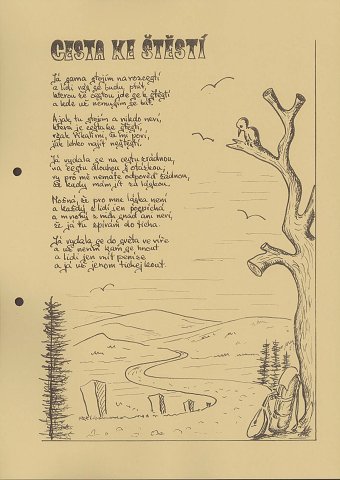 CESTA KE ŠTĚSTÍ
Já sama stojím na rozcestí
a lidí vás se budu ptát,
kterou že cestou jde se k štěstí
a kde už nemusím se bát.
A jak tu stojím a nikdo neví,
která je cesta ke štěstí,
však říkali mi, že mi poví,
jak lehko najít neštěstí.
Já vydala se na cestu zrádnou,
na cestu dlouhou s otázkou,
vy pro mě nemáte odpověď žádnou,
že kudy mám jít za láskou.
Možná, že pro mne láska není
a každý z lidí jen pospíchá
a mnohý z nich snad ani neví,
že já tu zpívám do ticha.
Já vydala se do světa ve víře
a už nevím kam se hnout
a lidi jen mít peníze
a já už jenom